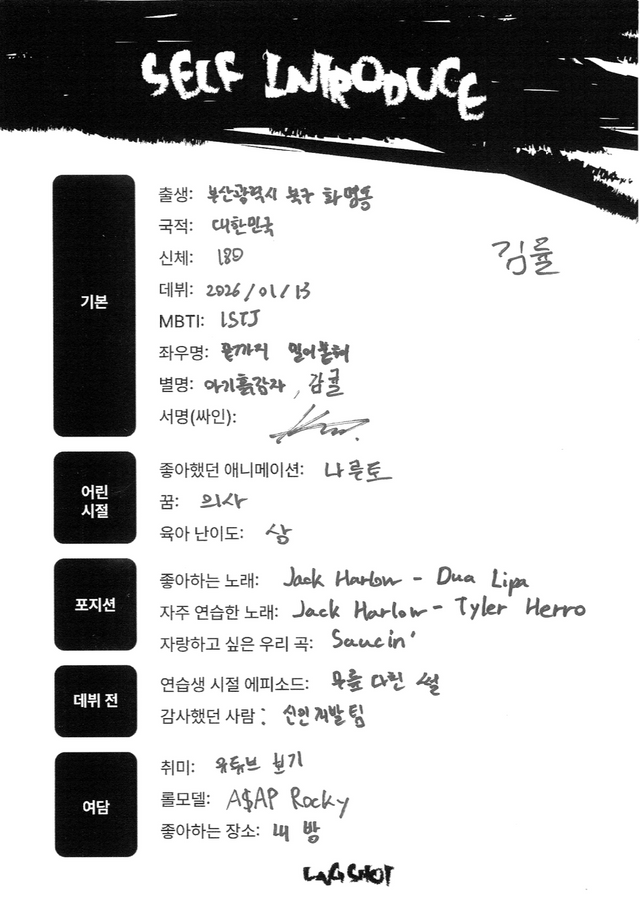 SELF INTRODUCE
기본
출생: 부산광역시 북구 화명동
국적: 대한민국
김률
신체: 180
데뷔: 2026/01/13
MBTI: ISTJ
좌우명: 끝까지 밀어붙혀
별명: 아기흙감자, 감귤
서명(싸인):
어린 시절
좋아했던 애니메이션: 나루토
꿈: 의사
육아 난이도: 상
포지션
좋아하는 노래: Jack Harlow - Dua Lipa
자주 연습한 노래: Jack Harlow - Tyler Herro
자랑하고 싶은 우리 곡: Saucin'
데뷔 전
연습생 시절 에피소드: 무릎 다친 썰
감사했던 사람: 신인개발팀
여담
취미: 유튜브 보기
롤모델: A$AP Rocky
좋아하는 장소: 내 방
LNGSHOT